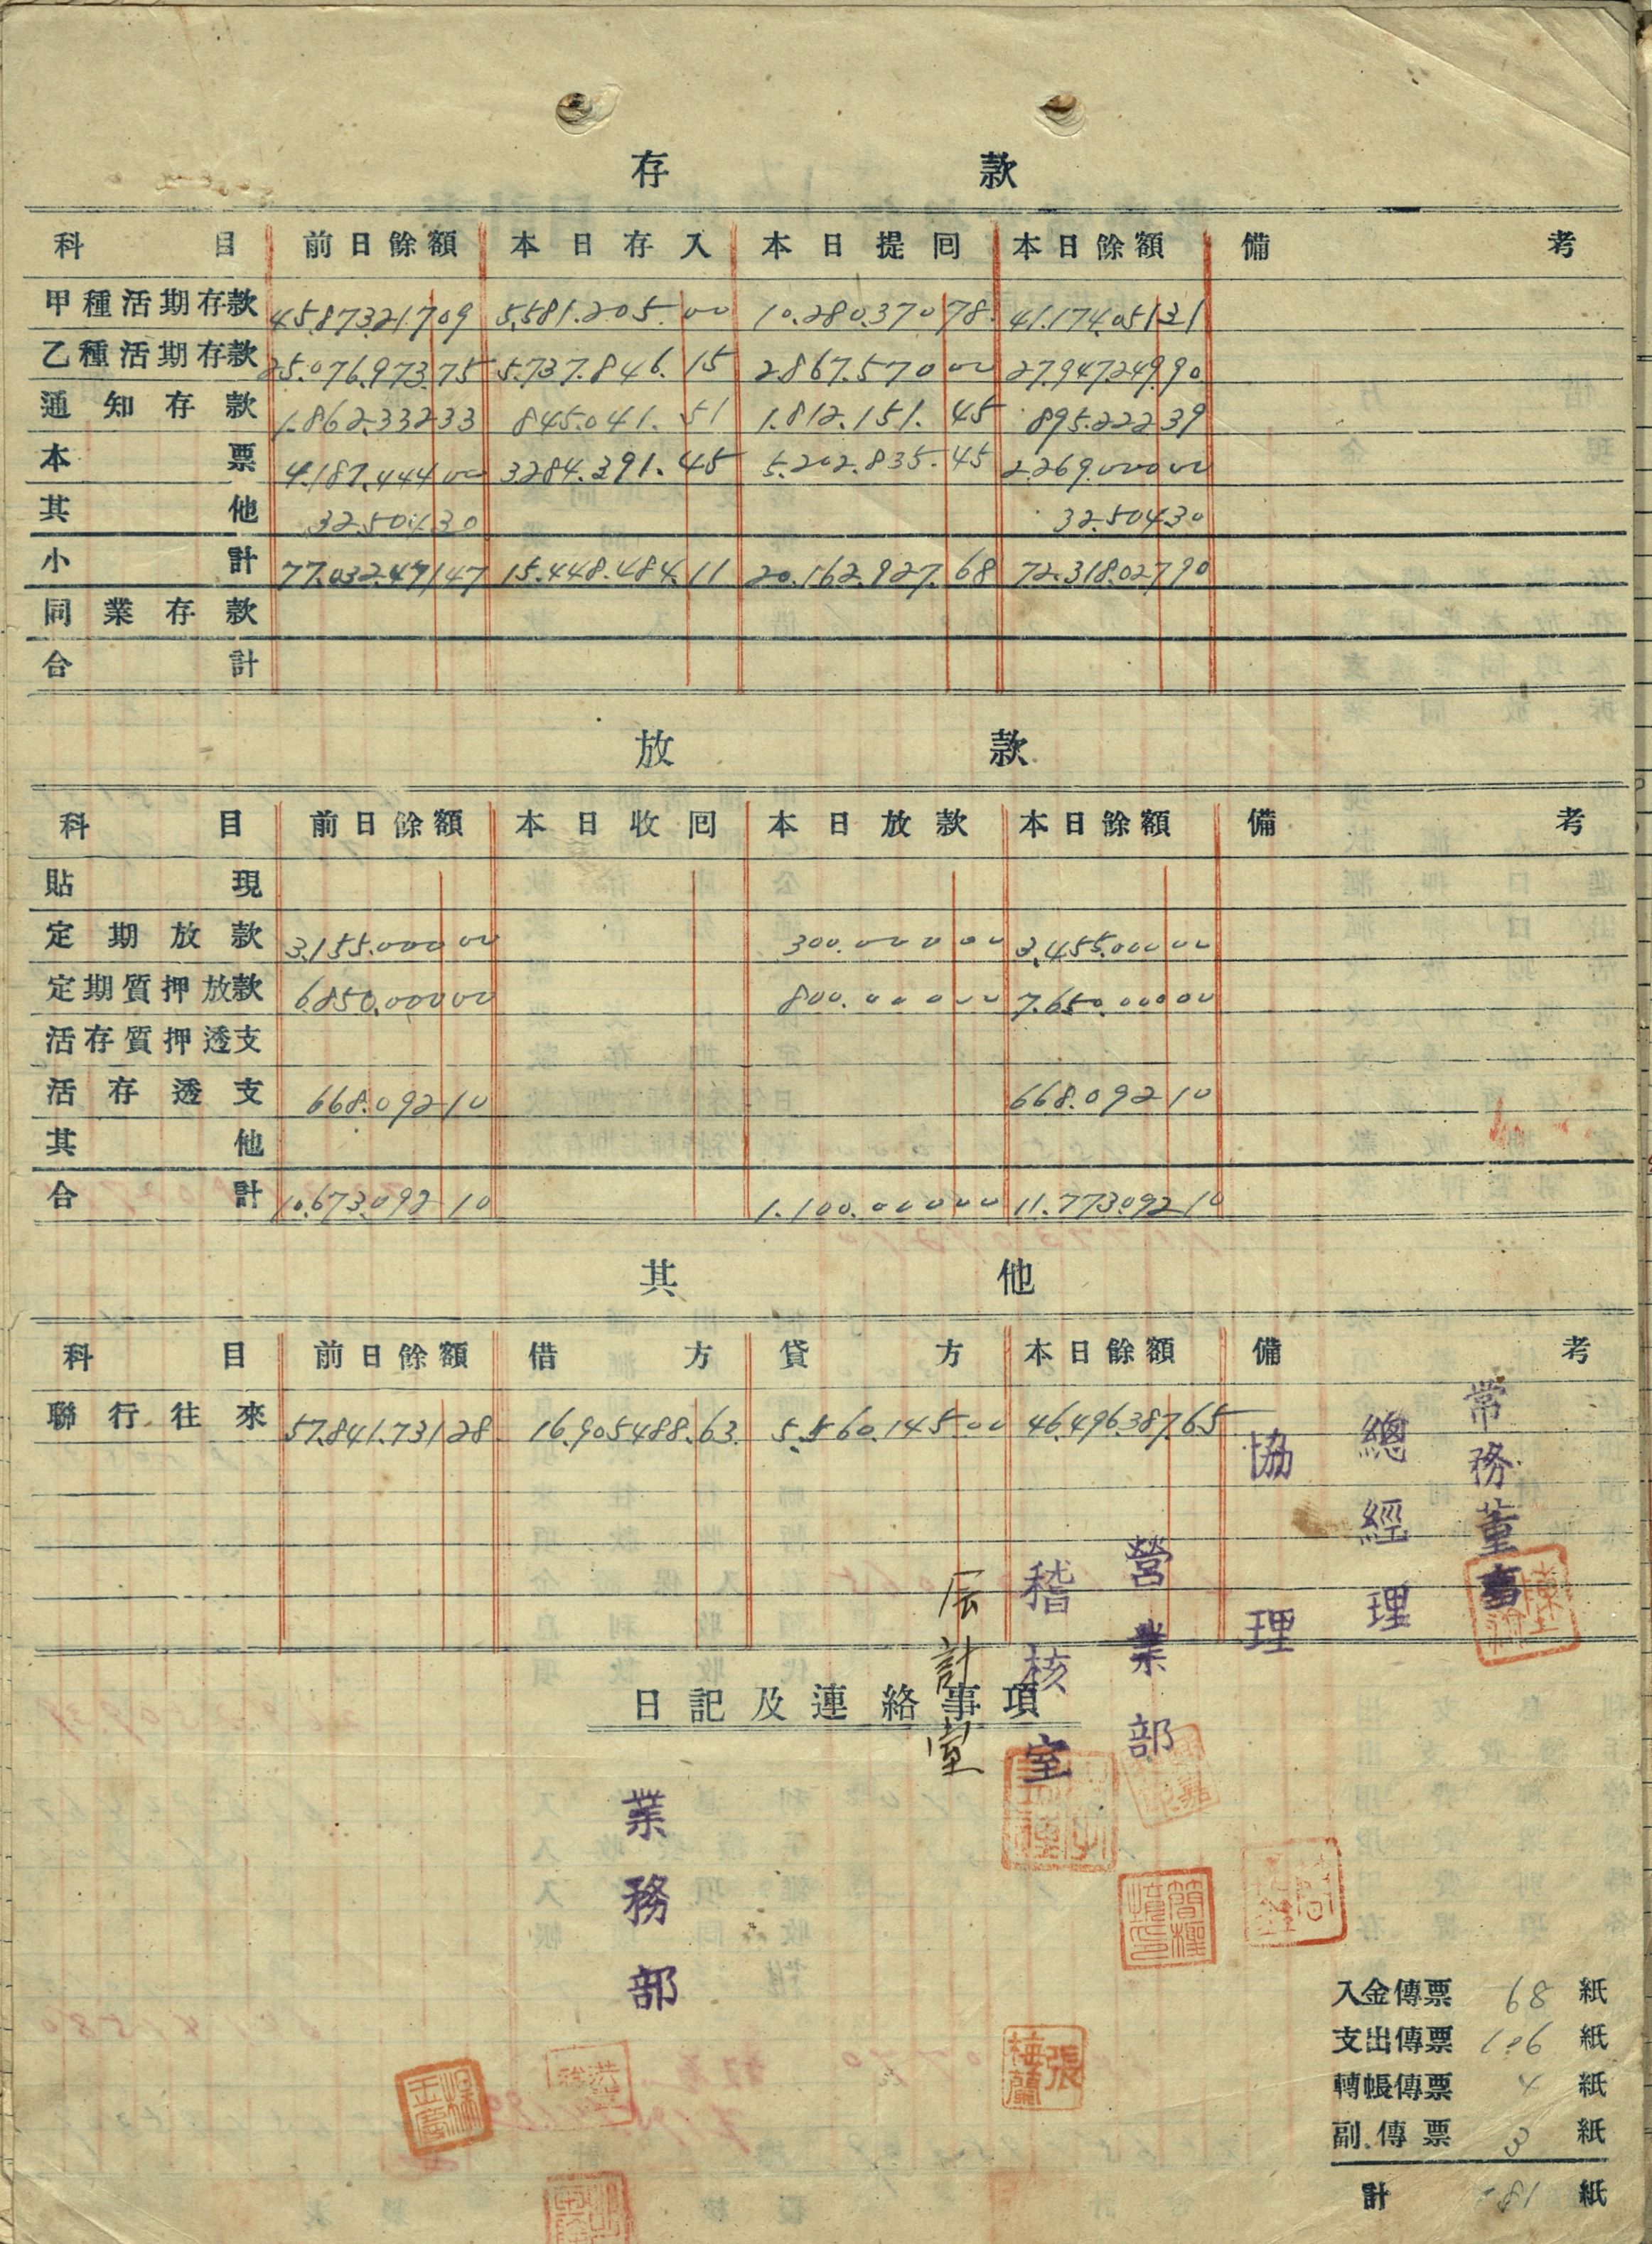 存 款
科 目 前日餘額 本日存入 本日提囘 本日餘額 備 考
甲種活期存款 45.873.217 09 5.581.205.00 10.280.370 78 41.174.051 31
乙種活期存款 25.076.973 75 5.737.846.15 2.867.570 00 27.947.249 90
通知存款 1.862.332 33 845.041.51 1.812.151.45 895.222 39
本票 4.187.444 00 3.284.391.45 5.202.835.45 2.269.000 00
其他 32.504 30 32.504 30
小計 77.032.471 47 15.448.484.11 20.162.927.68 72.318.027 90
同業存款
合計
放 款
科 目 前日餘額 本日收囘 本日放款 本日餘額 備 考
貼現
定期放款 3.155.000 00 300.000 00 3.455.000 00
定期質押放款 6.850.000 00 800.000 00 7.650.000 00
活存質押透支
活存透支 668.092 10 668.092 10
其他
合計 10.673.092 10 1.100.000 00 11.773.092 10
其 他
科 目 前日餘額 借方 貸方 本日餘額 備 考
聯行往來 57.841.731 28 16.905.488.63 5.560.145.00 46.496.387 65
常務董事
總經理
協理
營業部
稽核室
會計室
日記及連絡事項
業務部
張梅蘭
入金傳票 紙
支出傳票 紙
轉帳傳票 紙
副傳票 3 紙
計 紙